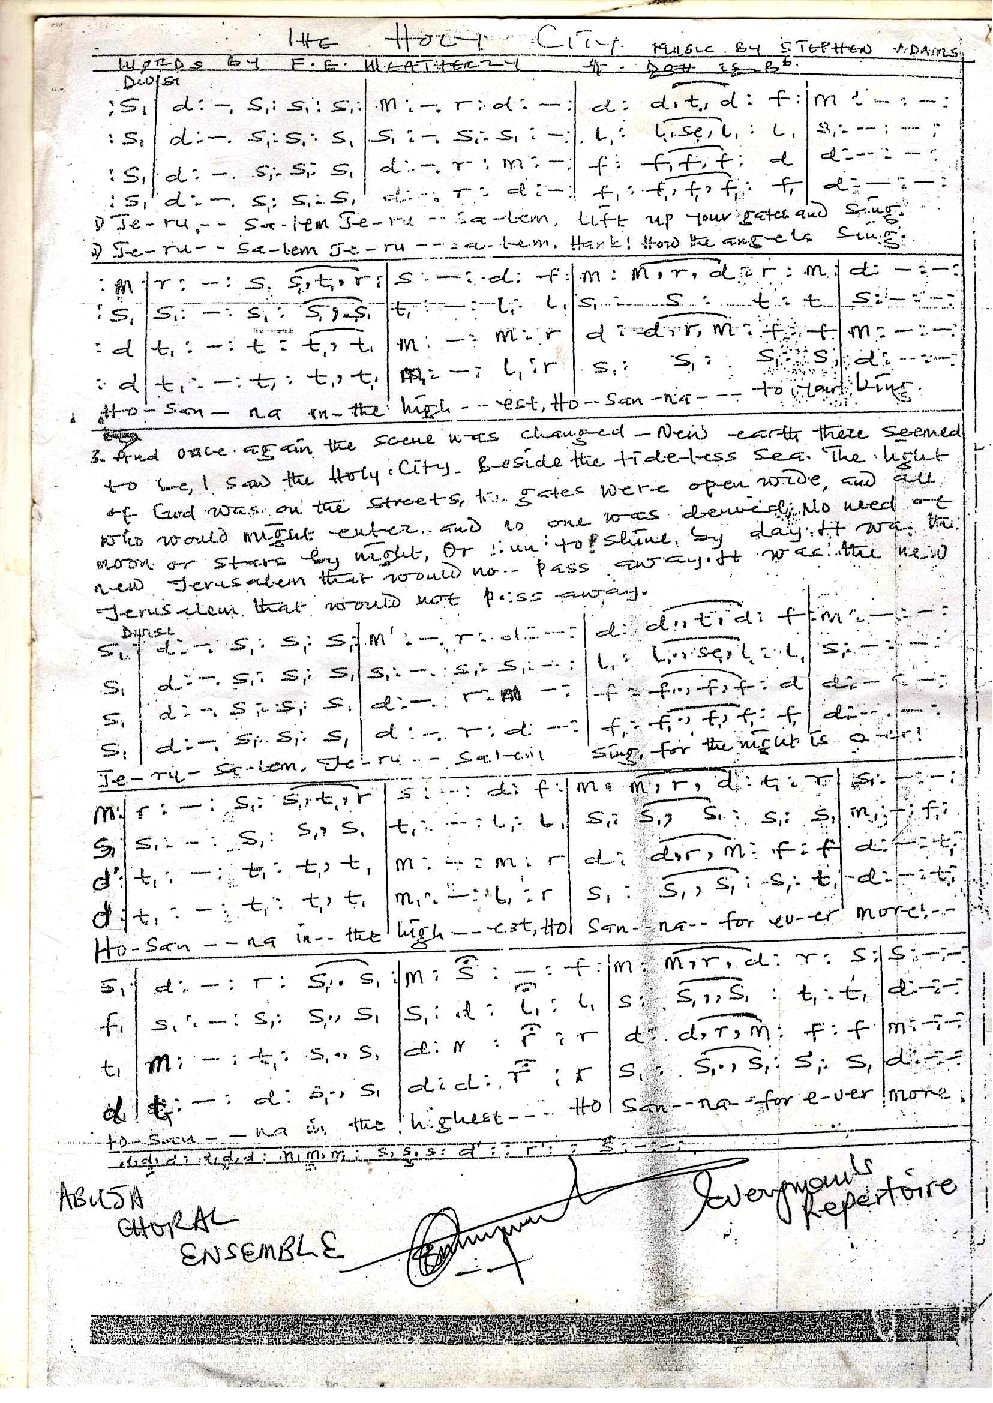 THE HOLY CITY MUSIC BY STEPHEN ADAMS
WORDS BY F.E. WEATHERLY # DOH is Bb
Divisi
:S₁| d:-. S₁: S₁: S₁:| m:-. r:d:-:| d: d,t₁,d: f:| m:-:-:
:S₁| d:-. S₁: S₁: S₁| S₁:-. S₁: S₁:-:| l₁: l₁,se₁,l₁: l₁| S₁:-:-:
:S₁| d:-. S₁: S₁: S₁| d:-. r:m:-| f: f,f,f: d| d:-:-:
:S₁| d:-. S₁: S₁: S₁| d:-. r:d:-:| f₁: f₁,f₁,f₁: f₁| d:-:-:
1) Je-ru-- Sa-lem Je-ru-- Sa-lem. Lift up your gates and Sing.
2) Je-ru-- Sa-lem Je-ru-- Sa-lem. Hark! How the angels Sing.
:m| r:-: S₁ S₁,t₁,r:| S:-: d: f| m: m,r,d: r: m| d:-:-:
:S₁| S₁:-: S₁: S₁,S₁| t₁:-: l₁: l₁| S₁: S: t: t| S:-:-:
:d| t₁:-: t: t₁,t₁| m:-: m: r| d: d,r,m: f: f| m:-:-
:d| t₁:-: t₁: t₁,t₁| m₁:-: l₁: r| S₁: S₁: S₁: S₁| d:-:-:
Ho-San-na in-the high---est, Ho-San-na--- to your King.
3. And once again the scene was changed - New earth there seemed
to be, I saw the Holy City. Beside the tide-less Sea. The light
of God was on the streets, the gates were open wide, and all
who would might enter and no one was denied, No need of
moon or stars by night, Or sun to shine by day. It was the
new Jerusalem that would not pass away. It was the new
Jerusalem that would not pass away.
Divisi
S₁| d:-. S₁: S₁: S₁| m:-. r: d:-:| d: d,t₁,d: f| m:-:-:
S₁| d:-. S₁: S₁: S₁| S₁:-. S₁: S₁:-:| l₁: l₁,se₁,l₁: l₁| S₁:-:-:
S₁| d:-. S₁: S₁: S₁| d:-. r: m -:| f: f,f,f: d| d:-:-:
S₁| d:-. S₁: S₁: S₁| d:-. r: d:-:| f₁: f₁,f₁,f₁: f₁| d:-:-:
Je-ru-Sa-lem, Je-ru-- Salem Sing, for the night is O-er!
m:| r:-: S₁: S₁,t₁,r| S:-: d: f:| m: m,r,d: t₁: r| S₁:-:-:
S₁| S₁:-: S₁: S₁, S₁| t₁:-: l₁: l₁| S₁: S₁, S₁: S₁: S₁| m₁:-: f₁:
d:| t₁:-: t₁: t₁, t₁| m:-: m: r| d: d,r,m: f: f| d:-: t₁
d:| t₁:-: t₁: t₁, t₁| m₁:-: l₁: r| S₁: S₁,S₁: S₁: t₁| d:-: t₁
Ho-San---na in--the high---est, Ho San--na-- for ev-er more!--
S₁| d:-: r: S₁. S₁| m: S:-: f| m: m,r,d: r: S:| S:-:-:
f₁| S₁:-: S₁: S₁., S₁| S₁: d: l₁: l₁| S: S₁.,S₁: t₁: t₁| d:-:-
t₁| m:-: t₁: S₁., S₁| d: r: r: r| d: d,r,m: f: f| m:-:-
d| t₁:-: d: S₁., S₁| d: d: r: r| S₁: S₁.,S₁: S₁: S₁| d:-:-
Ho-San---na in the highest--- Ho San--na--for e-ver more
d,d,d: d,d,d: m,m,m: S,S,S: d': r': S:-:-:
ABUJA
CHORAL
ENSEMBLE
Everyman's
Repertoire